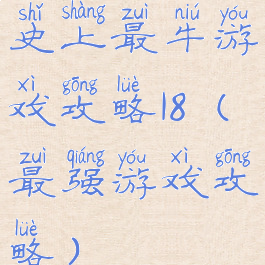 shǐ shàng zuì niú yóu
史上最牛游
xì gōng lüè
戏攻略18（
zuì qiáng yóu xì gōng
最强游戏攻
lüè
略）